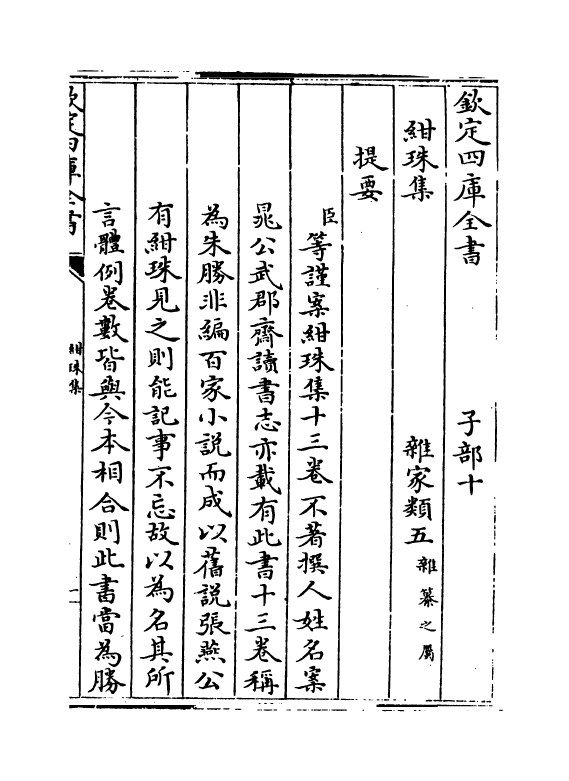 欽定四庫全書　子部十
紺珠集　雜家類五雜纂之屬
提要
臣等謹案紺珠集十三卷不著撰人姓名案
晁公武郡齋讀書志亦載有此書十三卷稱
為朱勝非編百家小説而成以舊説張燕公
有紺珠見之則能記事不忘故以為名其所
言體例卷數皆與今本相合則此書當為勝
欽定四庫全書
紺珠集
一